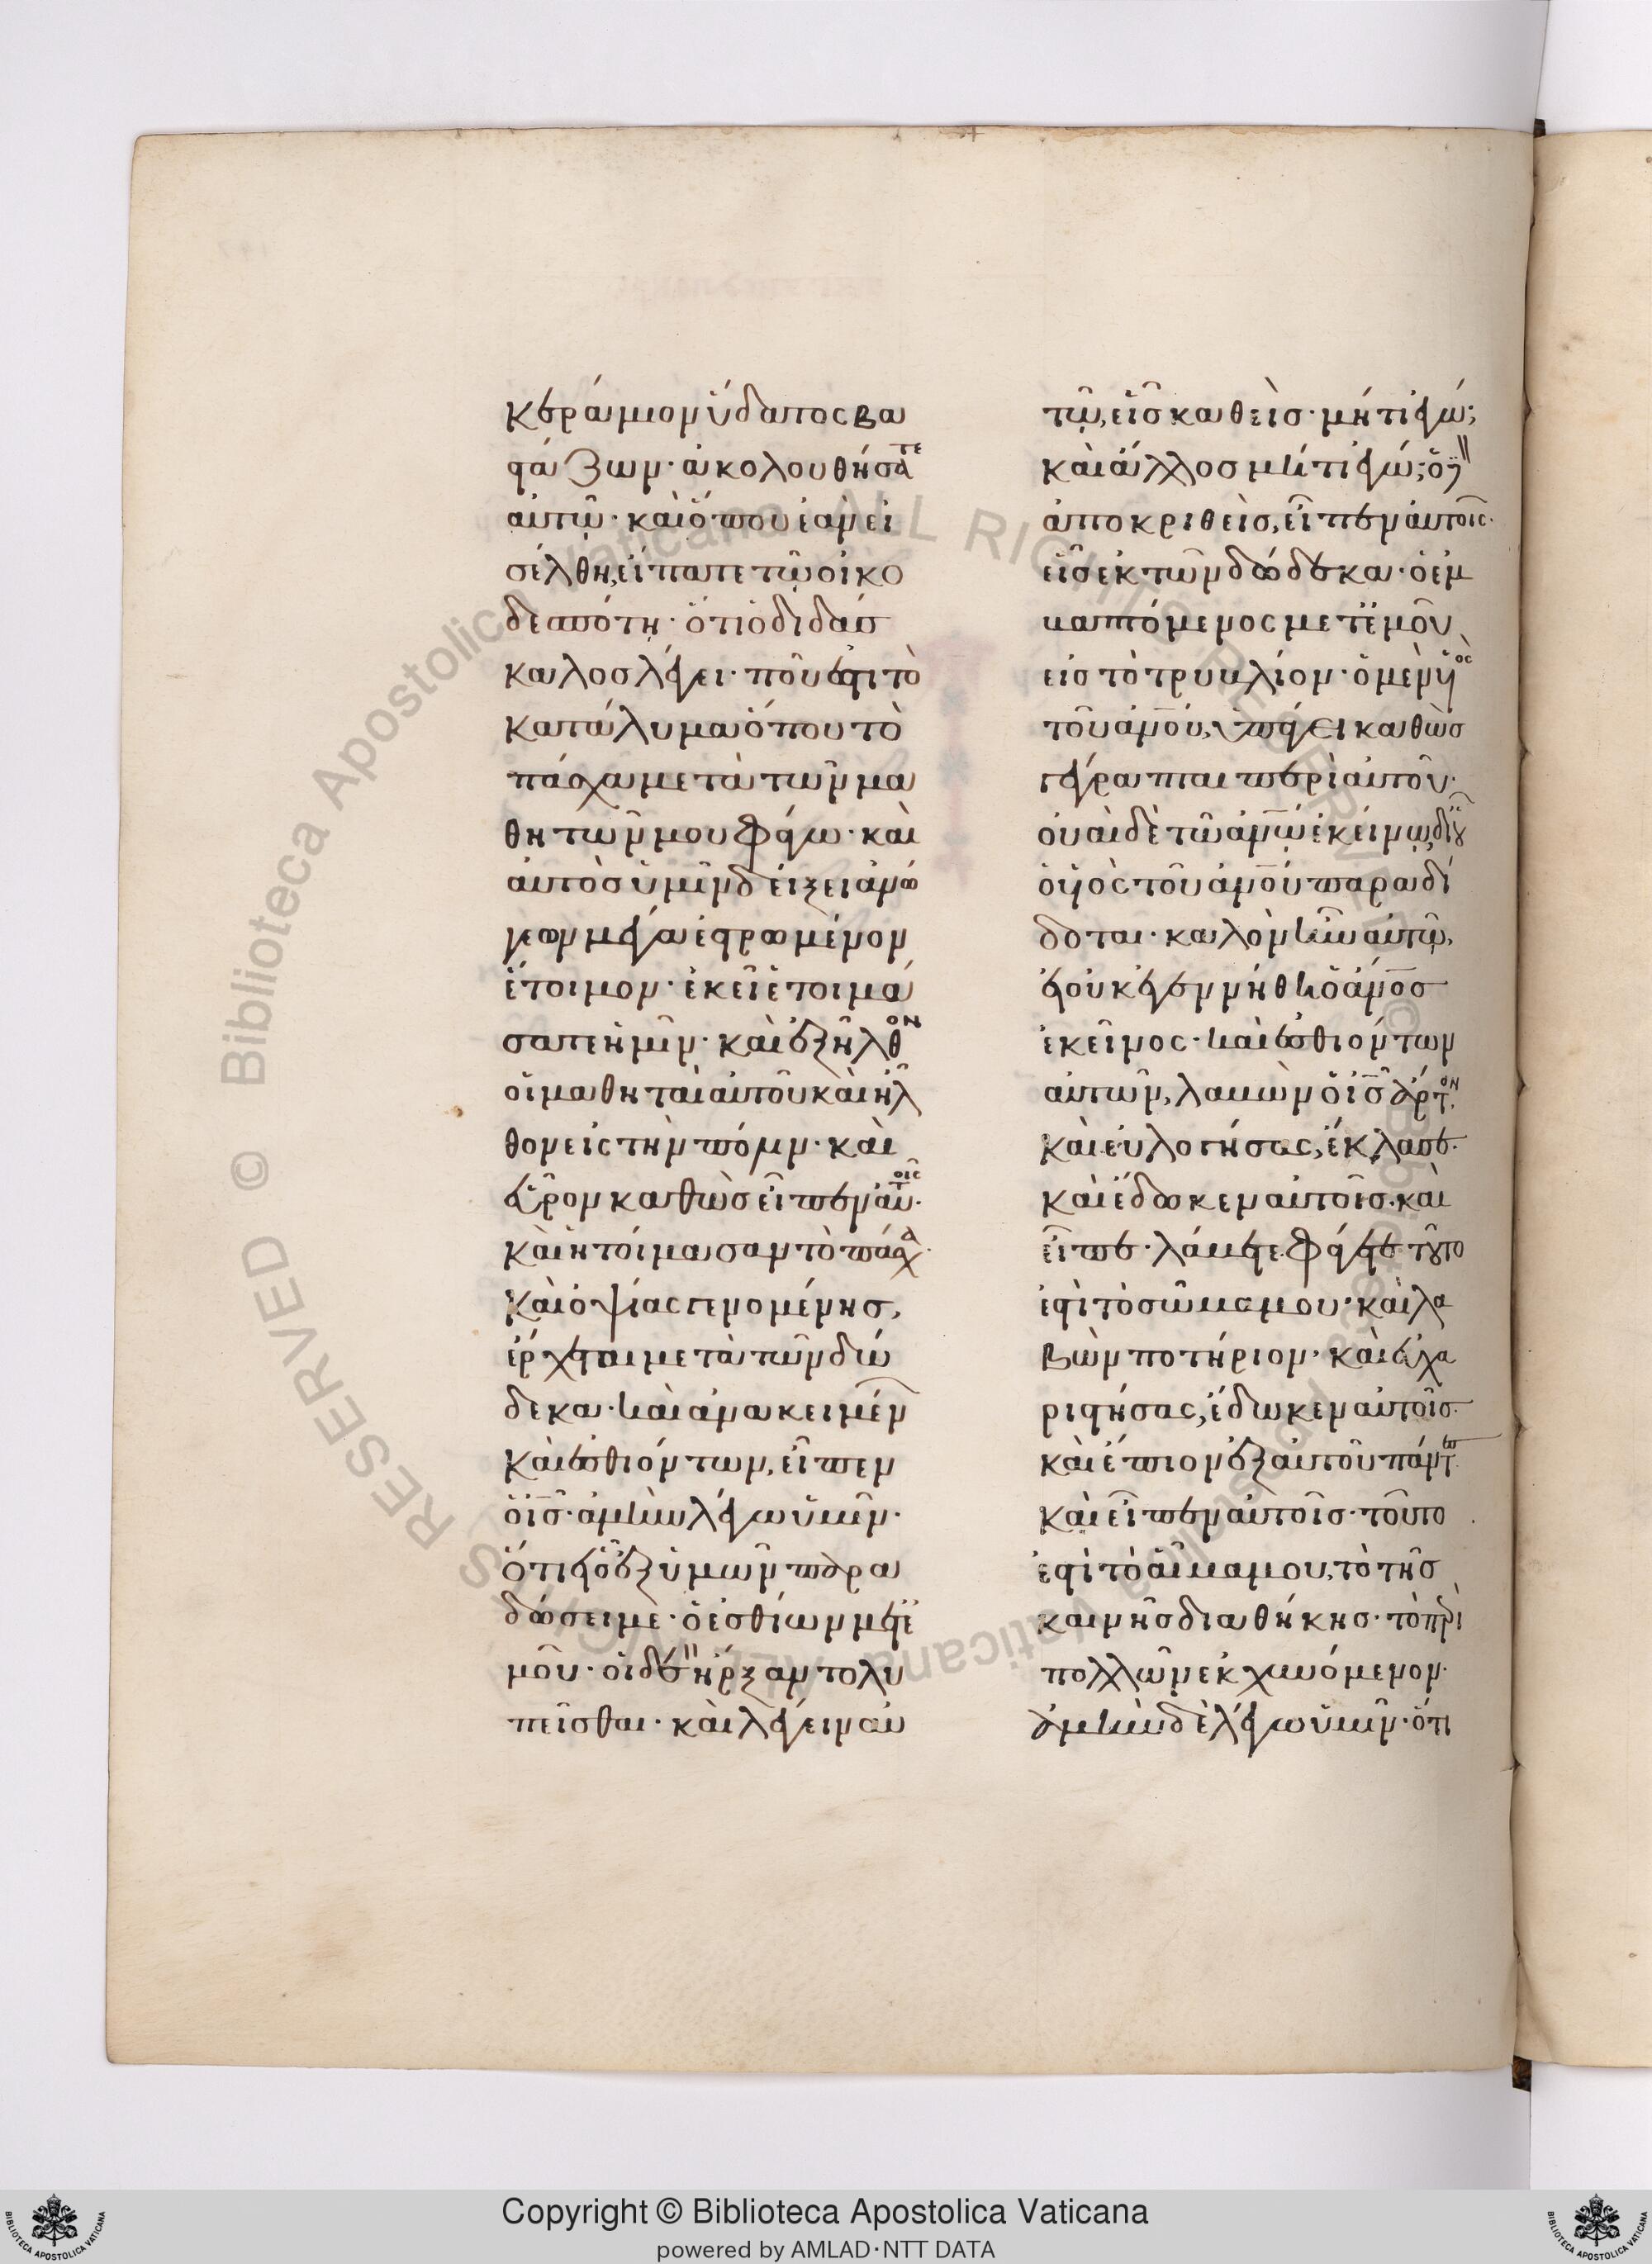 κεράμιον ὕδατος βα
στάζων· ἀκολουθήσατε
αὐτῷ· καὶ ὅπου ἐὰν εἰ
σέλθη, εἴπατε τῷ οἰκο
δεσπότη· ὅτι ὁ διδάσ
καλος λέγει· ποῦ ἐστι τὸ
κατάλυμα ὅπου τὸ
πάσχα μετὰ τῶν μα
θητῶν μου φάγω· καὶ
αὐτὸς ὑμῖν δείξει ἀνώ
γεων μέγα ἐστρωμένον
ἕτοιμον· ἐκεῖ ἑτοιμά
σατε ἡμῖν· καὶ ἐξῆλθον
οἱ μαθηταὶ αὐτοῦ καὶ ἦλ
θον εἰς τὴν πόλιν· καὶ
εὗρον καθὼς εἶπεν αὐτοῖς·
καὶ ἡτοίμασαν τὸ πάσχα·
Καὶ ὀψίας γενομένης,
ἔρχεται μετὰ τῶν δώ
δεκα· καὶ ἀνακειμέν
καὶ ἐσθιόντων, εἶπεν
ὁ ις· ἀμὴν λέγω ὑμῖν·
ὅτι εἷς ἐξ ὑμῶν παρα
δώσει με· ὁ ἐσθίων μετ' ἐ
μοῦ· οἱ δὲ ἤρξαντο λυ
πεῖσθαι· καὶ λέγειν αὐ
τῷ, εἷς καθεὶς· μήτι ἐγώ;
καὶ ἄλλος μήτι ἐγώ; ὁ δὲ
ἀποκριθεὶς, εἶπεν αὐτοῖς·
εἷς ἐκ τῶν δώδεκα· ὁ ἐμ
βαπτόμενος μετ' ἐμοῦ
εἰς τὸ τρυβλίον· ὁ μὲν υἱὸς
τοῦ ανου, ὑπάγει καθὼς
γέγραπται περὶ αὐτοῦ·
οὐαὶ δὲ τῷ ανω ἐκείνω δι' οὗ
ὁ υἱὸς τοῦ ανου παραδί
δοται· καλὸν ἦν αὐτῷ,
εἰ οὐκ ἐγεννήθη ὁ ανος
ἐκεῖνος· καὶ ἐσθιόντων
αὐτῶν, λαβὼν ὁ ις ἄρτον,
καὶ εὐλογήσας, ἔκλασε·
καὶ ἔδωκεν αὐτοῖς· καὶ
εἶπε· λάβετε φάγετε· τοῦτο
ἐστὶ τὸ σῶμα μου· καὶ λα
βὼν ποτήριον· καὶ εὐχα
ριστήσας, ἔδωκεν αὐτοῖς·
καὶ ἔπιον ἐξ αὐτοῦ πάντες
καὶ εἶπεν αὐτοῖς· τοῦτο
ἐστὶ τὸ αἷμα μου, τὸ τῆς
καινῆς διαθήκης· τὸ περὶ
πολλῶν ἐκχυνόμενον·
ἀμὴν δὲ λέγω ὑμῖν· ὅτι
© Biblioteca Apostolica Vaticana ALL RIGHTS RESERVED
© Biblioteca Apostolica Vaticana ALL RIGHTS RESERVED
Copyright © Biblioteca Apostolica Vaticana
powered by AMLAD·NTT DATA
BIBLIOTECA APOSTOLICA VATICANA
BIBLIOTECA APOSTOLICA VATICANA